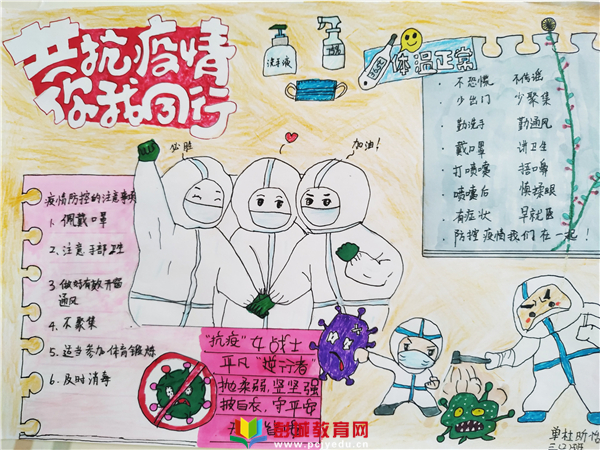 共抗疫情
你我同行
洗手液
酒精
体温正常
必胜
加油！
不恐慌 不传谣
少出门 少聚集
勤洗手 勤通风
戴口罩 讲卫生
打喷嚏 捂口鼻
喷嚏后 慎揉眼
有症状 早就医
防控疫情我们在一起！
疫情防控的注意事项
1. 佩戴口罩
2. 注意手部卫生
3. 做好有效开窗
通风
4. 不聚集
5. 适当参加体育锻炼
6. 及时消毒
"抗疫"女战士
平凡"逆行者"
抛柔弱,竖坚强
披白衣,守平安
教育网
www.pcfyedu.cn